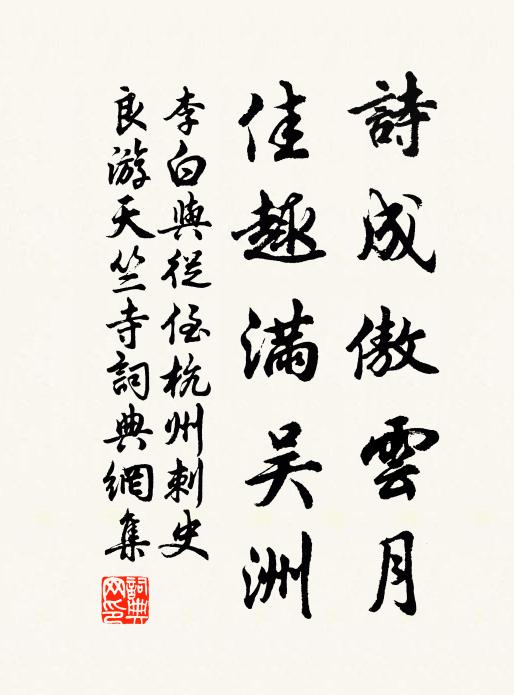 詩成傲雲月
佳趣滿吳洲
李白與從侄杭州刺史
良游天竺寺詞典網集
詞典
网印